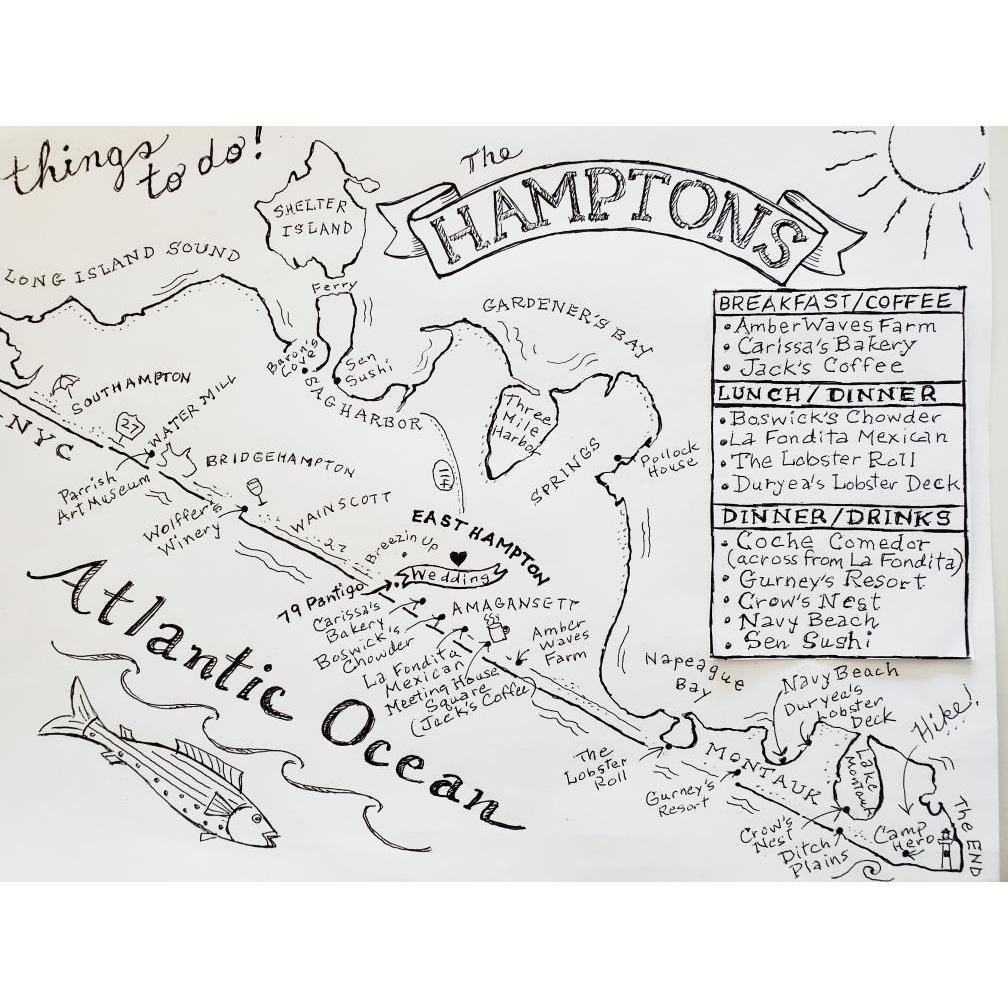 things
to do!
The
HAMPTONS
SHELTER
ISLAND
LONG ISLAND SOUND
Ferry
GARDENER'S BAY
Baron's
Cove
Sen
Sushi
SAG HARBOR
Three
Mile
Harbor
SPRINGS
Pollock
House
SOUTHAMPTON
27
WATER MILL
NYC
Parrish
Art Museum
BRIDGEHAMPTON
114
Wolffer's
Winery
WAINSCOTT
27
Breezin Up
EAST HAMPTON
Wedding
79 Pantigo
Carissa's
Bakery
Boswick's
Chowder
AMAGANSETT
La Fondita
Mexican
Meeting House
Square
(Jack's Coffee)
Amber
Waves
Farm
Napeague
Bay
Atlantic Ocean
The
Lobster
Roll
MONTAUK
Gurney's
Resort
Navy Beach
Duryea's
Lobster
Deck
Lake
Montauk
Hike!
Crow's
Nest
Ditch
Plains
Camp
Hero
The END
BREAKFAST/COFFEE
• Amber Waves Farm
• Carissa's Bakery
• Jack's Coffee
LUNCH/DINNER
• Boswick's Chowder
• La Fondita Mexican
• The Lobster Roll
• Duryea's Lobster Deck
DINNER/DRINKS
• Coche Comedor
(across from La Fondita)
• Gurney's Resort
• Crow's Nest
• Navy Beach
• Sen Sushi